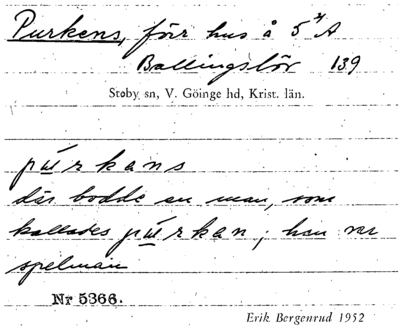 Purkens, förr hus å 5⁴A
Ballingslöv 139
Stoby sn, V. Göinge hd, Krist. län.
pú̱rkans
där bodde en man, som
kallades pú̱rkan; han var
spelman
Nr 5366.
Erik Bergenrud 1952